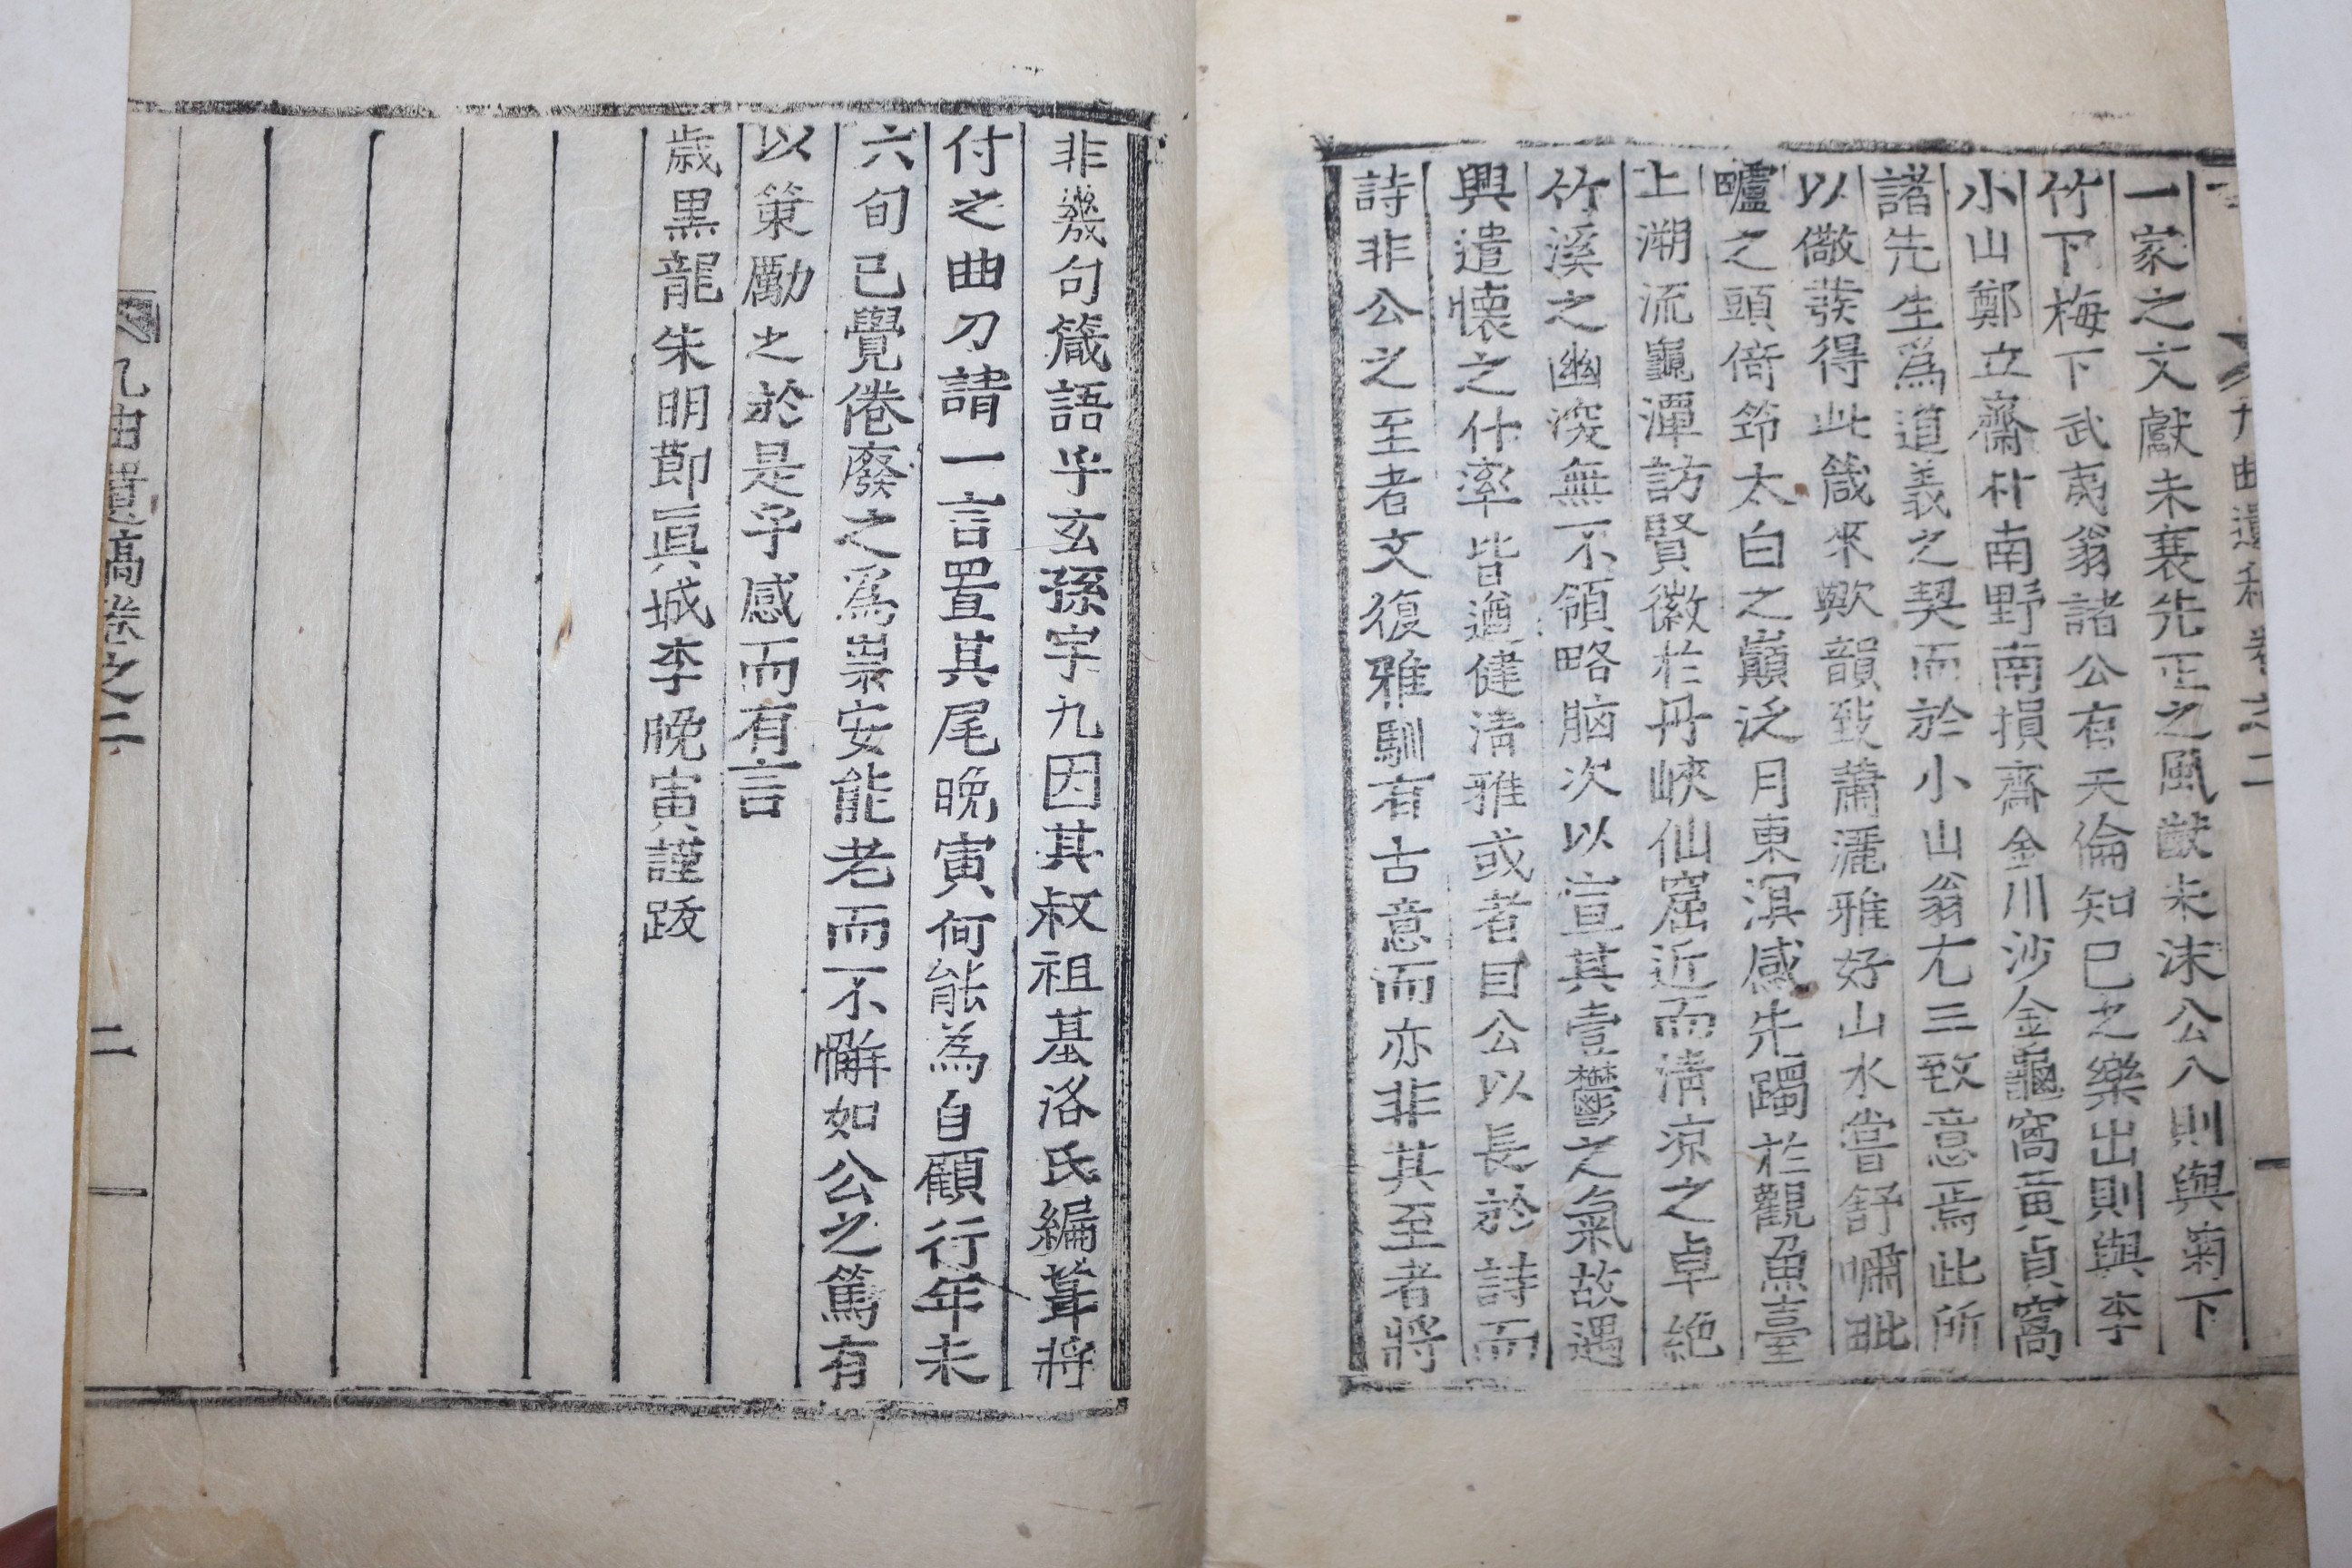 一家之文獻未衰先正之風猷未沫公入則與菊下
竹下梅下武夷翁諸公有天倫知己之樂出則與李
小山鄭立齋朴南野南損齋金川沙金龜窩黃貞窩
諸先生爲道義之契而於小山翁尤三致意焉此所
以儆發得此箴來歟韻致蕭灑雅好山水嘗舒嘯毗
嚧之頭倚笻太白之巓泛月東溟感牛躅於觀魚臺
上溯流龜潭訪賢徽於丹峽仙窟近而淸凉之卓絶
竹溪之幽深無不領略腦次以宣其壹鬱之氣故遇
興遣懷之什率皆遒健淸雅或者目公以長於詩而
詩非公之至者文復雅馴有古意而亦非其至者將
丹曲遺稿卷之二
一
非幾句箴語乎玄孫宇九因其叔祖基洛氏編葺將
付之曲刀請一言置其尾晩寅何能為自顧行年未
六旬已覺倦廢之爲祟安能老而不懈如公之篤有
以策勵之於是乎感而有言
歲黑龍朱明節眞城李晩寅謹跋
凡曲遺高卷之二
二